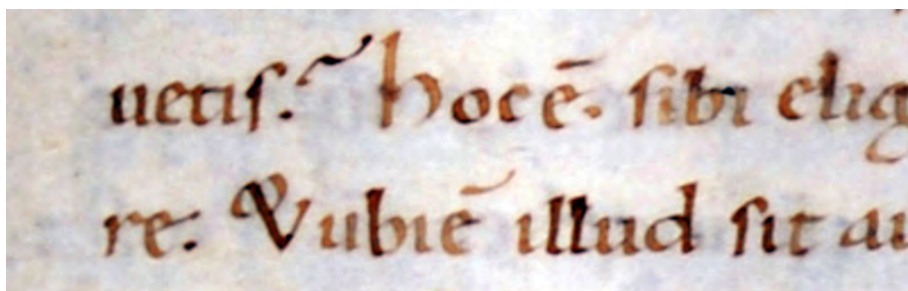 uetis. hocē. sibi elig
re. Vubiē illud sit au